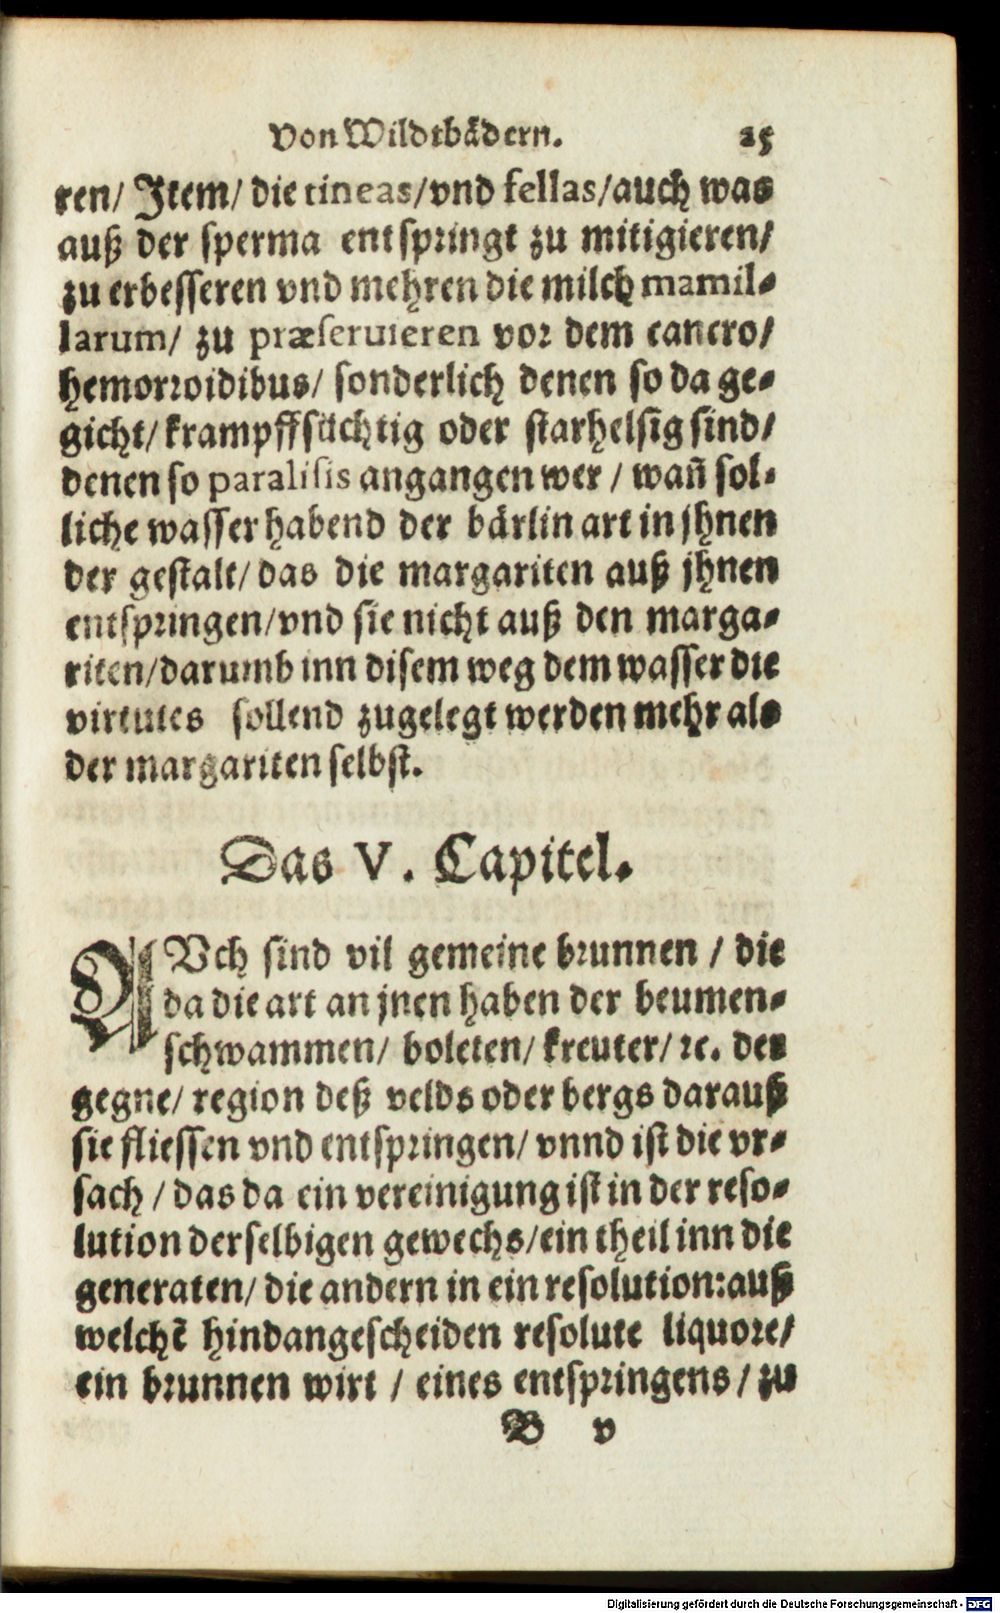 Von Wildtbädern. 25
ren/ Item/ die tineas/vnd fellas/auch was
auß der sperma entspringt zu mitigieren/
zu erbesseren vnd mehren die milch mamil-
larum/ zu præseruieren vor dem cancro/
hemorroidibus/ sonderlich denen so da ge-
gicht/krampffsüchtig oder starhelsig sind/
denen so paralisis angangen wer / wañ sol-
liche wasser habend der bärlin art in jhnen
der gestalt/das die margariten auß jhnen
entspringen/vnd sie nicht auß den marga-
riten/darumb inn disem weg dem wasser die
virtutes sollend zugelegt werden mehr als
der margariten selbst.
Das V. Capitel.
AVch sind vil gemeine brunnen / die
da die art an jnen haben der beumen-
schwammen/ boleten/ kreuter/ ꝛc. der
gegne/ region deß velds oder bergs darauß
sie fliessen vnd entspringen/ vnnd ist die vr-
sach / das da ein vereinigung ist in der reso-
lution derselbigen gewechs/ein theil inn die
generaten/ die andern in ein resolution:auß
welchẽ hindangescheiden resolute liquore/
ein brunnen wirt / eines entspringens / zu
B v
Digitalisierung gefördert durch die Deutsche Forschungsgemeinschaft - DFG